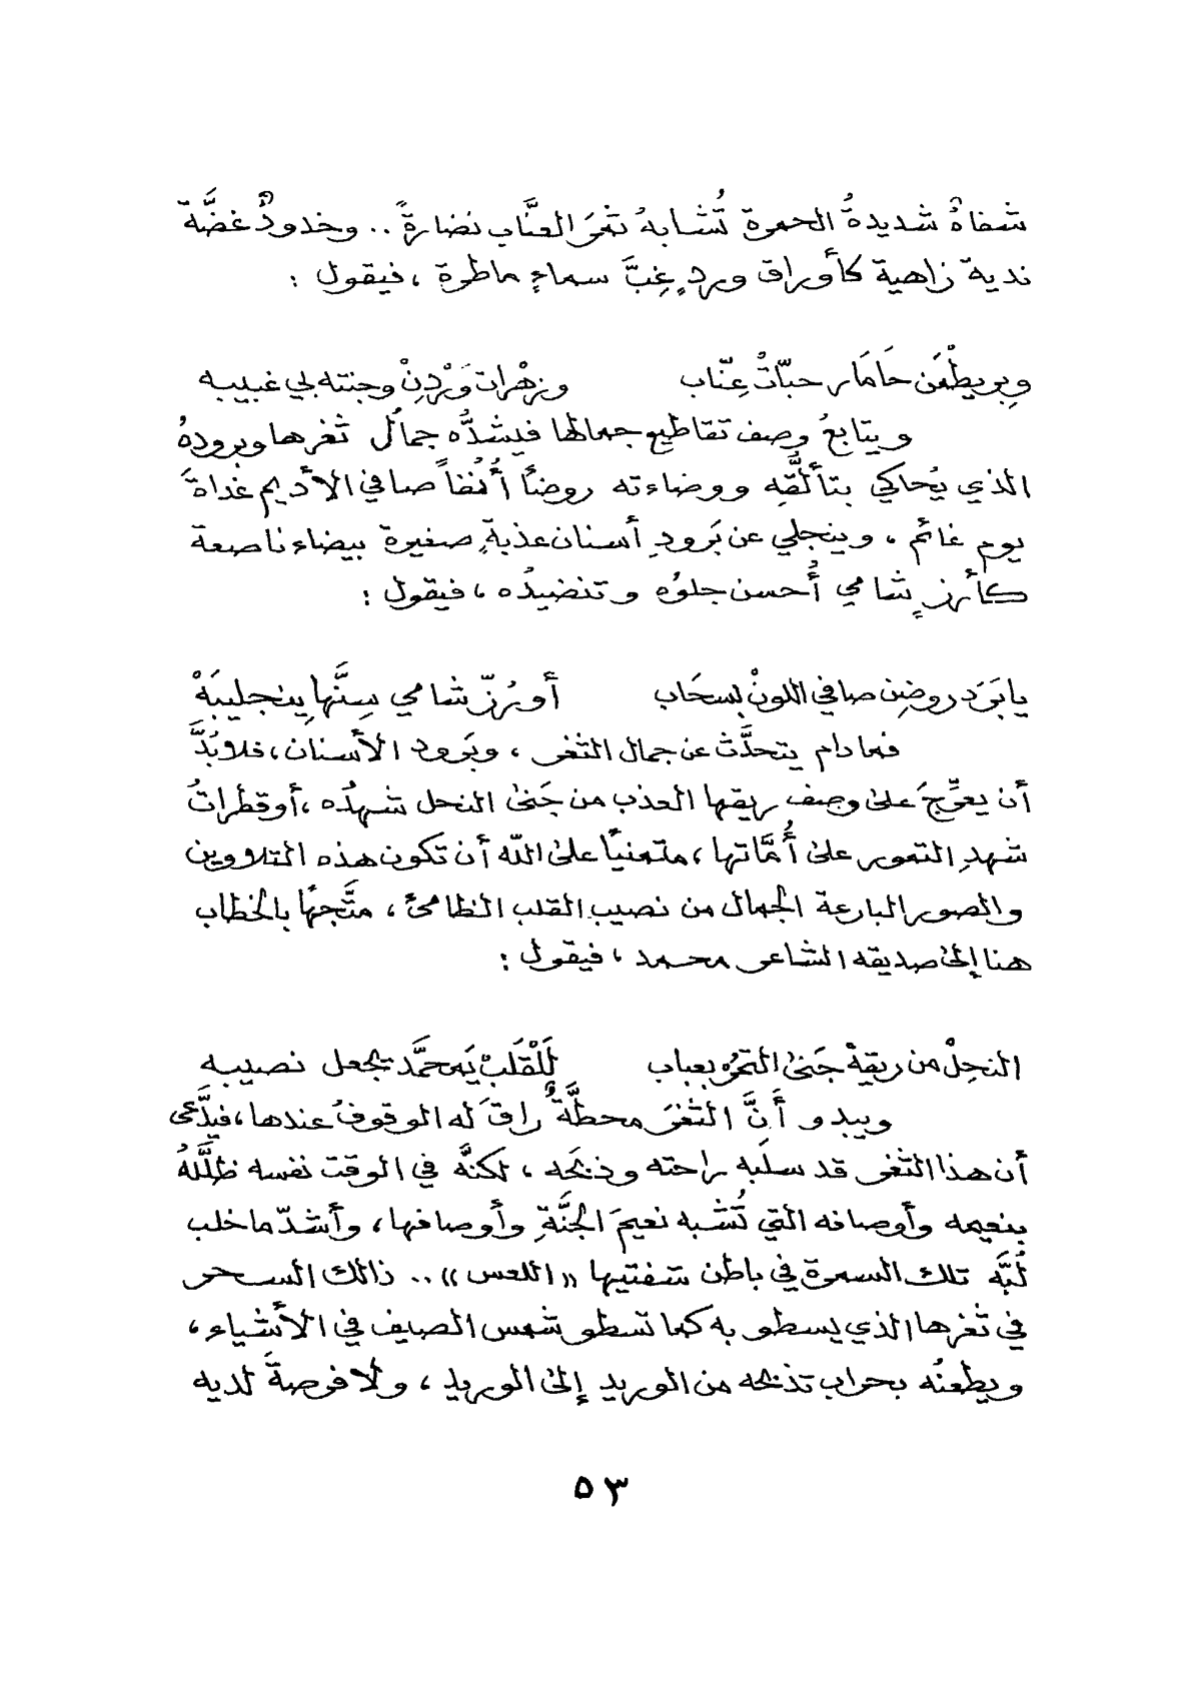 شفاهٌ شديدةُ الحمرة تُشابهُ ثغرَ العنَّاب نضارةً .. وخدودٌ غضَّة
ندية زاهية كأوراق وردٍ غِبَّ سماءٍ ماطرة ، فيقول :
وبريطْمَن حَامَار حبّاتْ عِنّاب وزهْرات وَرْدِنْ وجنته لي غبيبه
ويتابعُ وصف تقاطيع جمالها فيشدُّه جمالُ ثغرها وبرودهُ
الذي يُحاكي بتألُّقِه ووضاءته روضاً أُنُفاً صافي الأديم غداةَ
يوم غائم ، وينجلي عن بَرودِ أسنان عذبةٍ صغيرة بيضاء ناصعة
كأرزٍ شامي أُحسن جلوُه وتنضيدُه ، فيقول :
يا بَرَد روضِن صافي اللونْ بسحَاب أو رُزّ شامي سِنَّها ينجليبَهْ
فما دام يتحدَّث عن جمال الثغر ، وبَرود الأسنان ، فلا بُدَّ
أن يعرِّجَ على وصف ريقها العذب من جَنى النحل شهدُه ، أو قطراتُ
شهدِ التمور على أُمَّاتها ، متمنياً على الله أن تكون هذه التلاوين
والصور البارعة الجمال من نصيب القلب الظامئ ، متَّجهًا بالخطاب
هنا إلى صديقه الشاعر محمد ، فيقول :
النحِلْ من ريقِهْ جَنى التمُر بعباب لَلْقَلَبْ يَمحمَّد يجعل نصيبه
ويبدو أَنَّ الثغرَ محطَّةٌ راقَ له الوقوفُ عندها ، فيدَّعى
أن هذا الثغر قد سلَبه راحته وذبحَه ، لكنَّه في الوقت نفسه ظلَّلهُ
بنعيمه وأوصافه التي تُشبه نعيمَ الجنَّةِ وأوصافها ، وأشدّ ما خلب
لُبَّه تلك السمرة في باطن شفتيها «اللعس» .. ذالك السحر
في ثغرها الذي يسطو به كما تسطو شمس الصيف في الأشياء ،
ويطعنُه بحراب تذبحه من الوريد إلى الوريد ، ولا فرصةَ لديه
٥٣